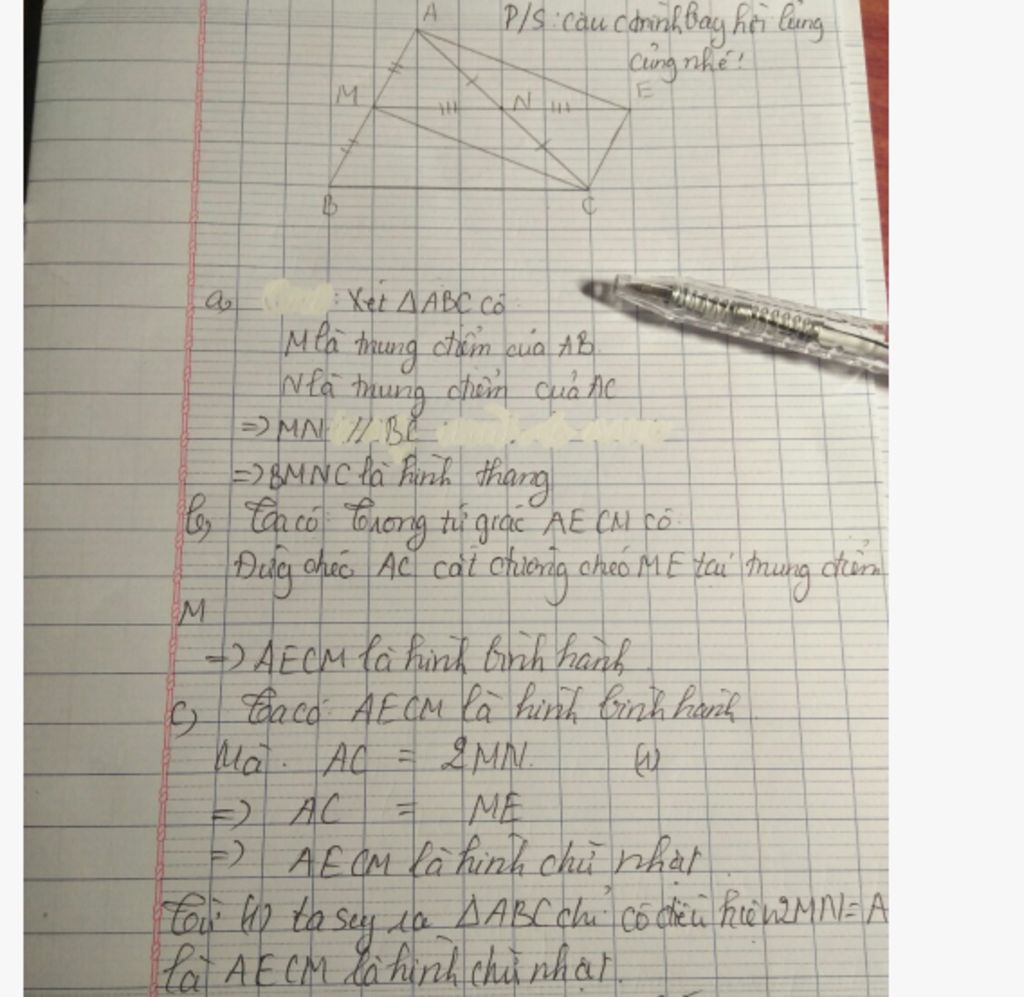 A
P/S: câu c trình bày hơi lủng
củng nhé!
M
N
E
B
C
a, : Xét ΔABC có
M là trung điểm của AB
N là trung điểm của AC
=> MN // BC
=> BMNC là hình thang
b, Ta có: Trong tứ giác AECM có
chéo AC cắt đường chéo ME tại trung điểm
M
=> AECM là hình bình hành
c, Ta có AECM là hình bình hành
Mà. AC = 2MN. (1)
=> AC = ME
=> AECM là hình chữ nhật
Từ (1) ta suy ra ΔABC chỉ có điều kiện 2MN = A
là AECM là hình chữ nhật.